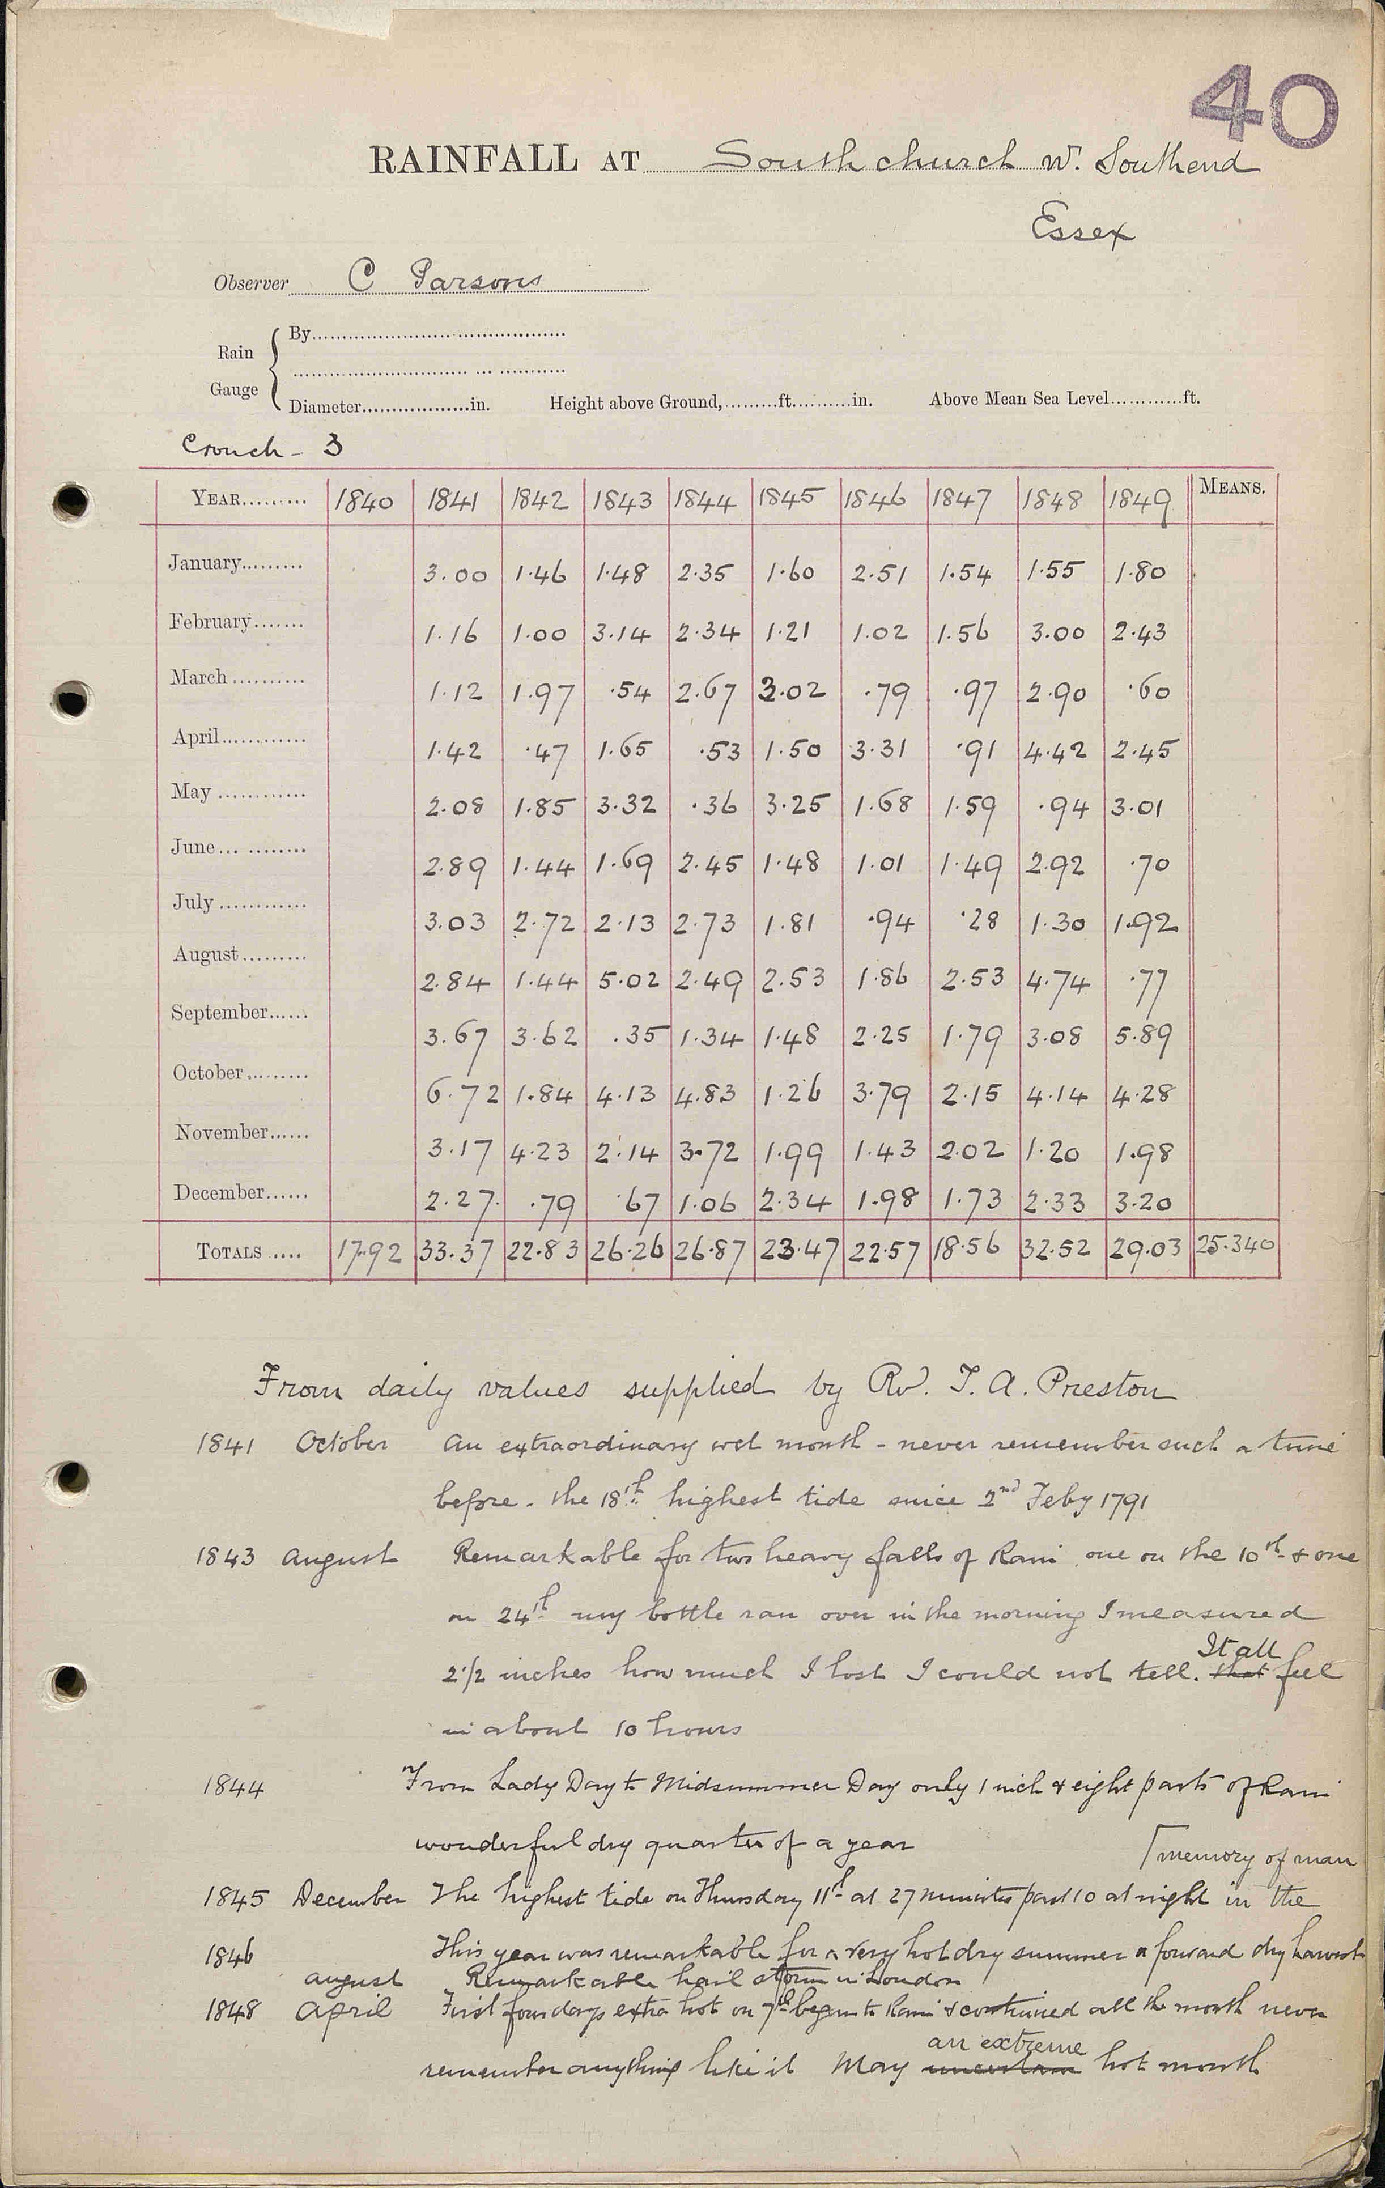 40
RAINFALL AT Southchurch Nr. Southend
Essex
Observer C Parsons
Rain Gauge { By
Diameter in. Height above Ground, ft. in. Above Mean Sea Level ft.
Crouch - 3
YEAR 1840 1841 1842 1843 1844 1845 1846 1847 1848 1849 MEANS.
January 3.00 1.46 1.48 2.35 1.60 2.51 1.54 1.55 1.80
February 1.16 1.00 3.14 2.34 1.21 1.02 1.56 3.00 2.43
March 1.12 1.97 .54 2.67 3.02 .79 .97 2.90 .60
April 1.42 .47 1.65 .53 1.50 3.31 .91 4.42 2.45
May 2.08 1.85 3.32 .36 3.25 1.68 1.59 .94 3.01
June 2.89 1.44 1.69 2.45 1.48 1.01 1.49 2.92 .70
July 3.03 2.72 2.13 2.73 1.81 .94 .28 1.30 1.92
August 2.84 1.44 5.02 2.49 2.53 1.86 2.53 4.74 .77
September 3.67 3.62 .35 1.34 1.48 2.25 1.79 3.08 5.89
October 6.72 1.84 4.13 4.83 1.26 3.79 2.15 4.14 4.28
November 3.17 4.23 2.14 3.72 1.99 1.43 2.02 1.20 1.98
December 2.27 .79 .67 1.06 2.34 1.98 1.73 2.33 3.20
TOTALS 17.92 33.37 22.83 26.26 26.87 23.47 22.57 18.56 32.52 29.03 25.340
From daily values supplied by Rev. T. A. Preston
1841 October An extraordinary wet month - never remember such a time
before. The 18th highest tide since 2nd Feby 1791
1843 August Remarkable for two heavy falls of Rain one on the 10th & one
on 24th my bottle ran over in the morning I measured
2 1/2 inches how much I lost I could not tell. that It all fell
in about 10 hours
1844 From Lady Day to Midsummer Day only 1 inch & eight parts of Rain
wonderful dry quarter of a year
1845 December The highest tide on Thursday 11th at 27 minutes past 10 at night in the
memory of man
1846 This year was remarkable for a very hot dry summer a forward dry harvest
August Remarkable hail storm in London
1848 April First four days extra hot on 7th began to Rain & continued all the month never
remember anything like it May an extreme hot month